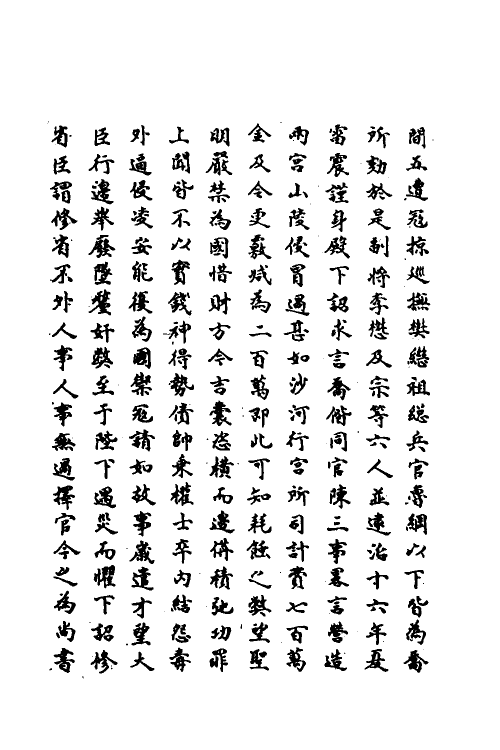 間五遭冦掠巡撫樊繼祖緫兵官魯綱以下皆為喬
所劾於是副將李懋及宗等六人並逮治十六年夏
雷震謹身殿下詔求言喬偕同官陳三事畧言營造
兩宫山陵侵冒過甚如沙河行宫所司計費七百萬
金及令更覈烕為二百萬即此可知耗蝕之獘望聖
明嚴禁為國惜財方今吉囊恣橫而邊備積弛功罪
上聞皆不以實錢神得勢債帥乗權士卒内結怨毒
外逼侵凌安能復為國禦冦請如故事嚴遣才望大
臣行邊举廢墜釐奸獘至于陛下遇災而懼下詔修
省臣謂修省不外人事人事無過擇官今之為尚書